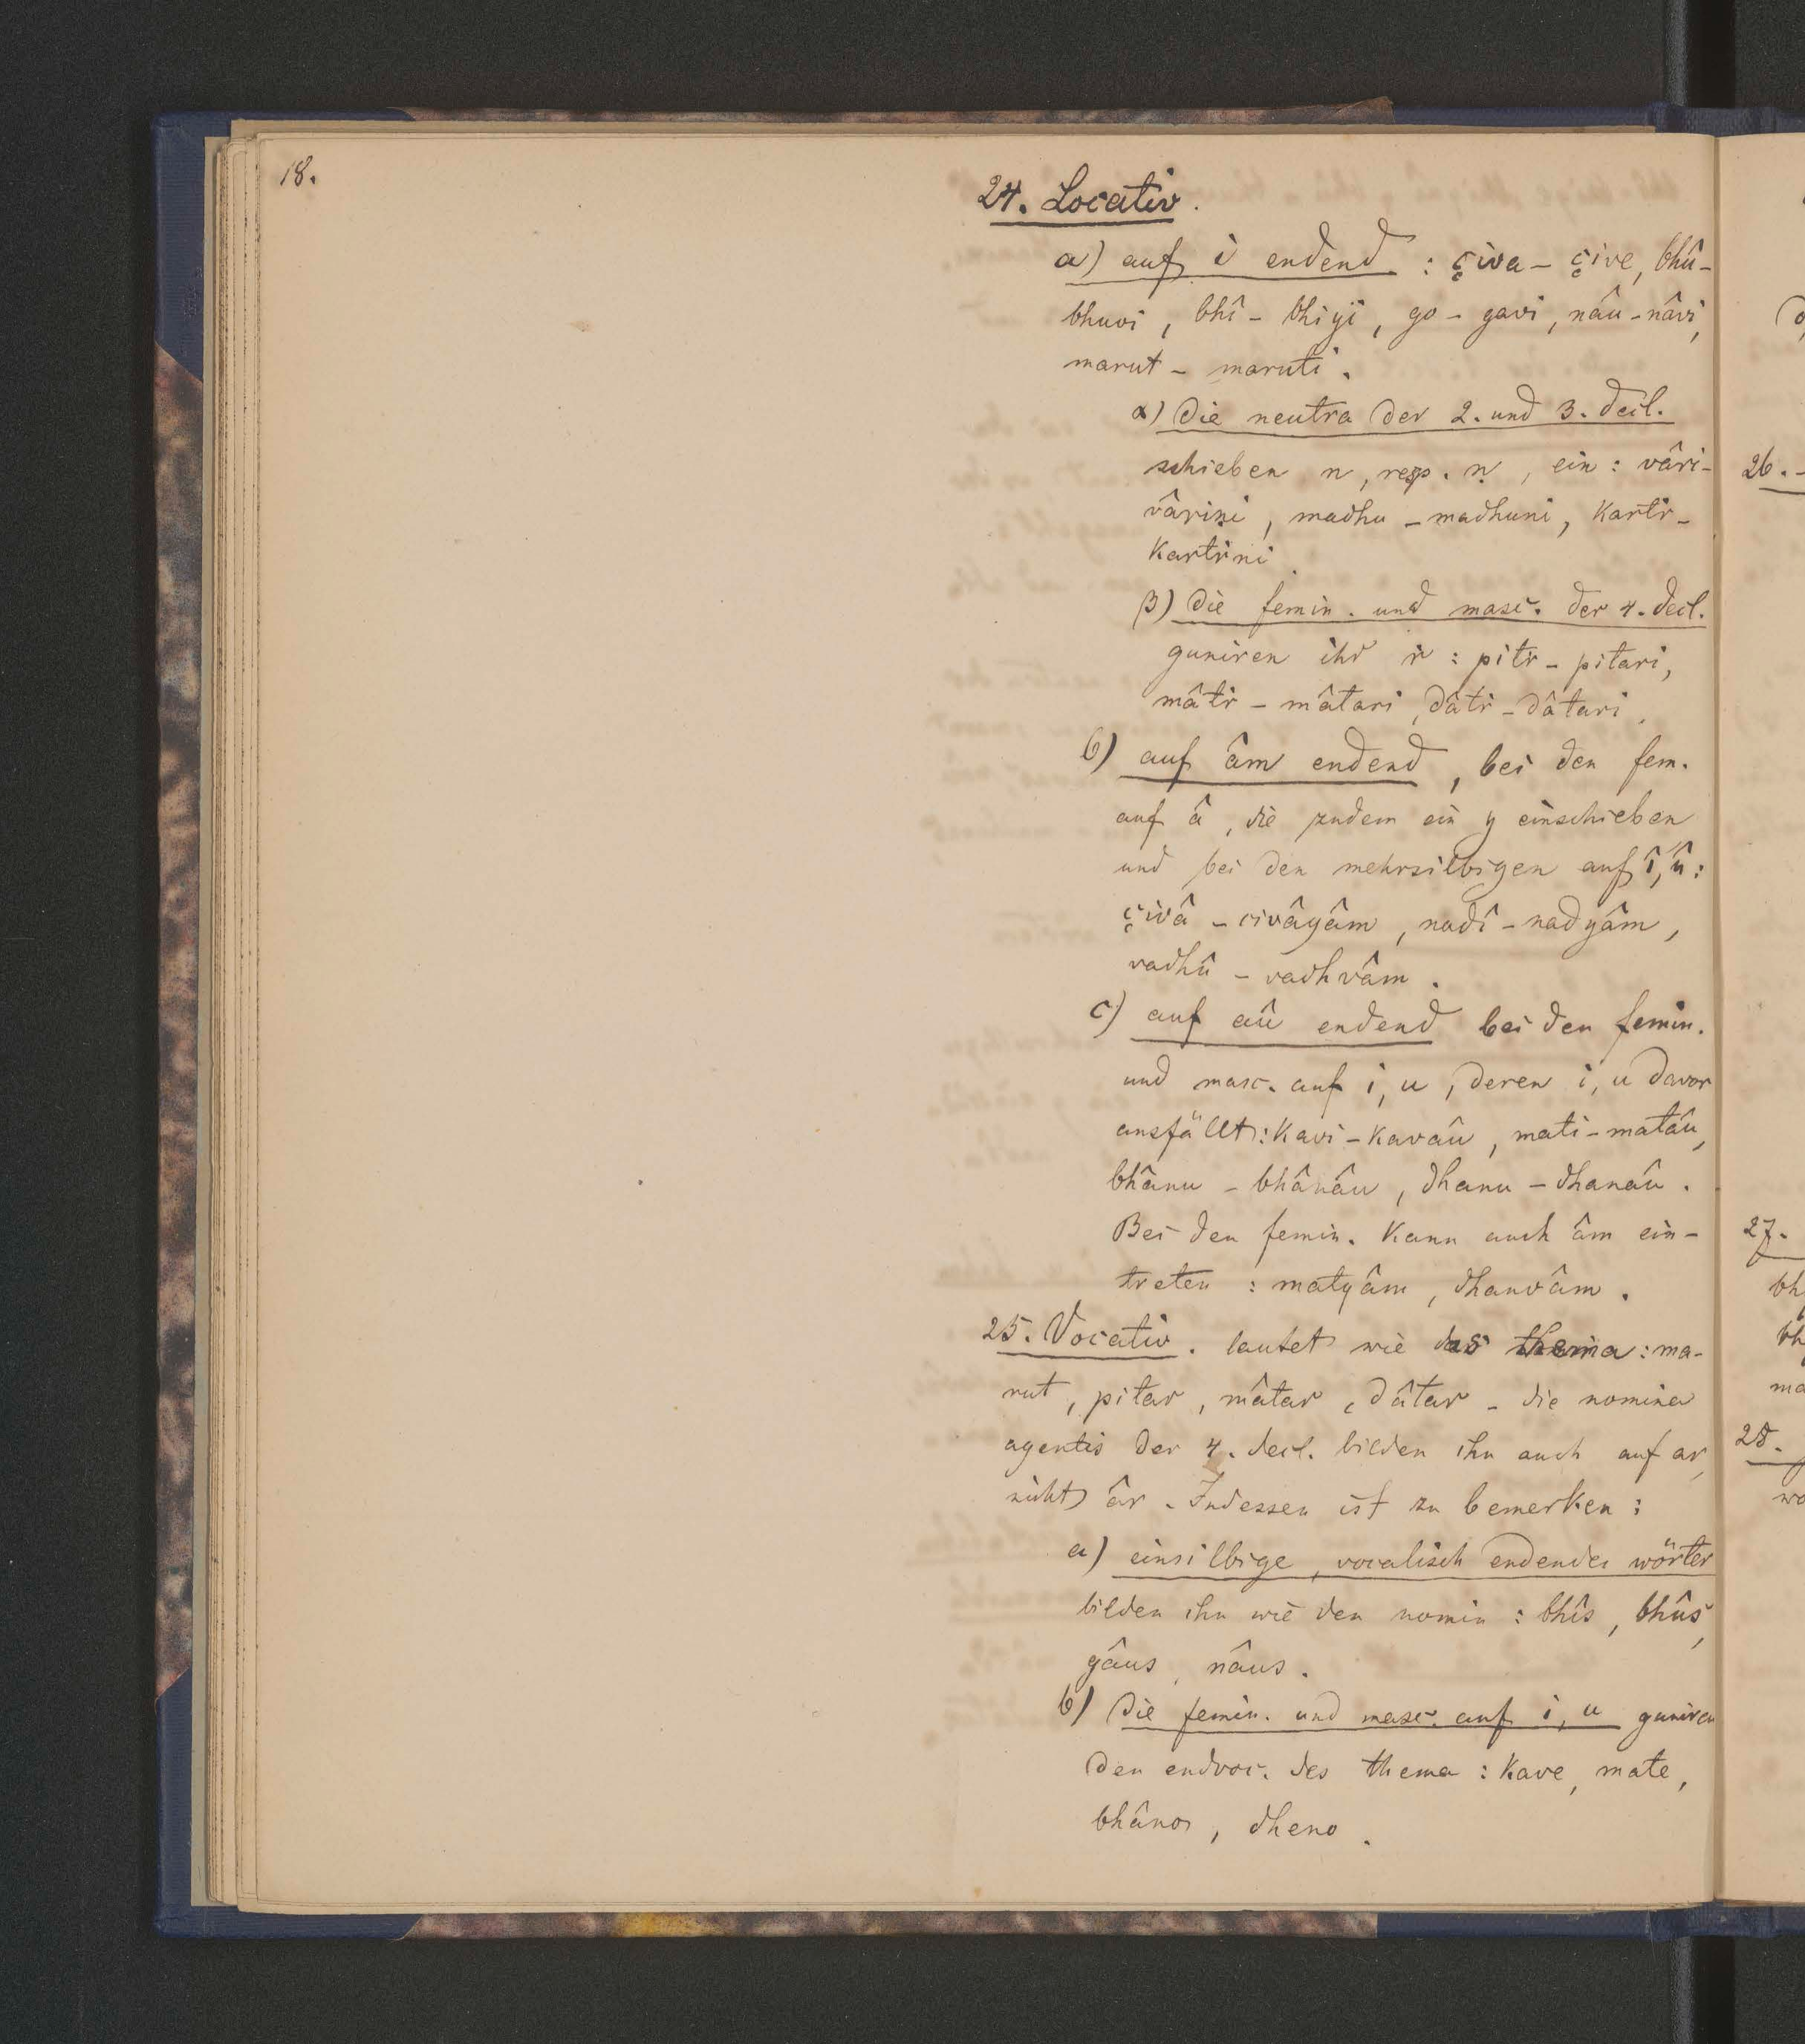 18.
24. Locativ.
a) auf i endend : çiva - çive, bhû-
bhuvi, bhî - bhiyi, go - gavi, nâu - nâvi,
marut - maruti.
α) Die neutra der 2. und 3. decl.
schieben n, resp. ṇ, ein : vâri-
vâriṇi, madhu - madhuni, kartṙ-
kartṙni
β) Die femin. und masc. der 4. decl.
guniren ihr ṙ : pitṙ - pitari,
mâtṙ - mâtari, dâtṙ - dâtari.
b) auf âm endend, bei den fem.
auf â, die zudem ein y einschieben
und bei den mehrsilbigen auf î, û :
çivâ - civâyâm, nadî - nadyâm,
vadhû - vadhvâm.
c) auf aû endend bei den femin.
und masc. auf i, u, deren i, u davor
ausfällt : kavi - kavâu, mati - matâu,
bhânu - bhânâu, dhanu - dhanâu.
Bei den femin. kann auch âm ein-
treten : matyâm, dhanvâm.
25. Vocativ. lautet wie das thema : ma-
rut, pitar, mâtar, dâtar - die nomina
agentis der 4. decl. bilden ihn auch auf ar,
nicht âr. Indessen ist zu bemerken :
a) einsilbige, vocalisch endende wörter
bilden ihn wie den nomin : bhîs, bhûs,
gâus, nâus.
b) Die femin. und masc. auf i, u guniren
den endvoc. des thema : kave, mate,
bhâno, dheno.
26. -
27.
bh
bh
ma
28.
wo